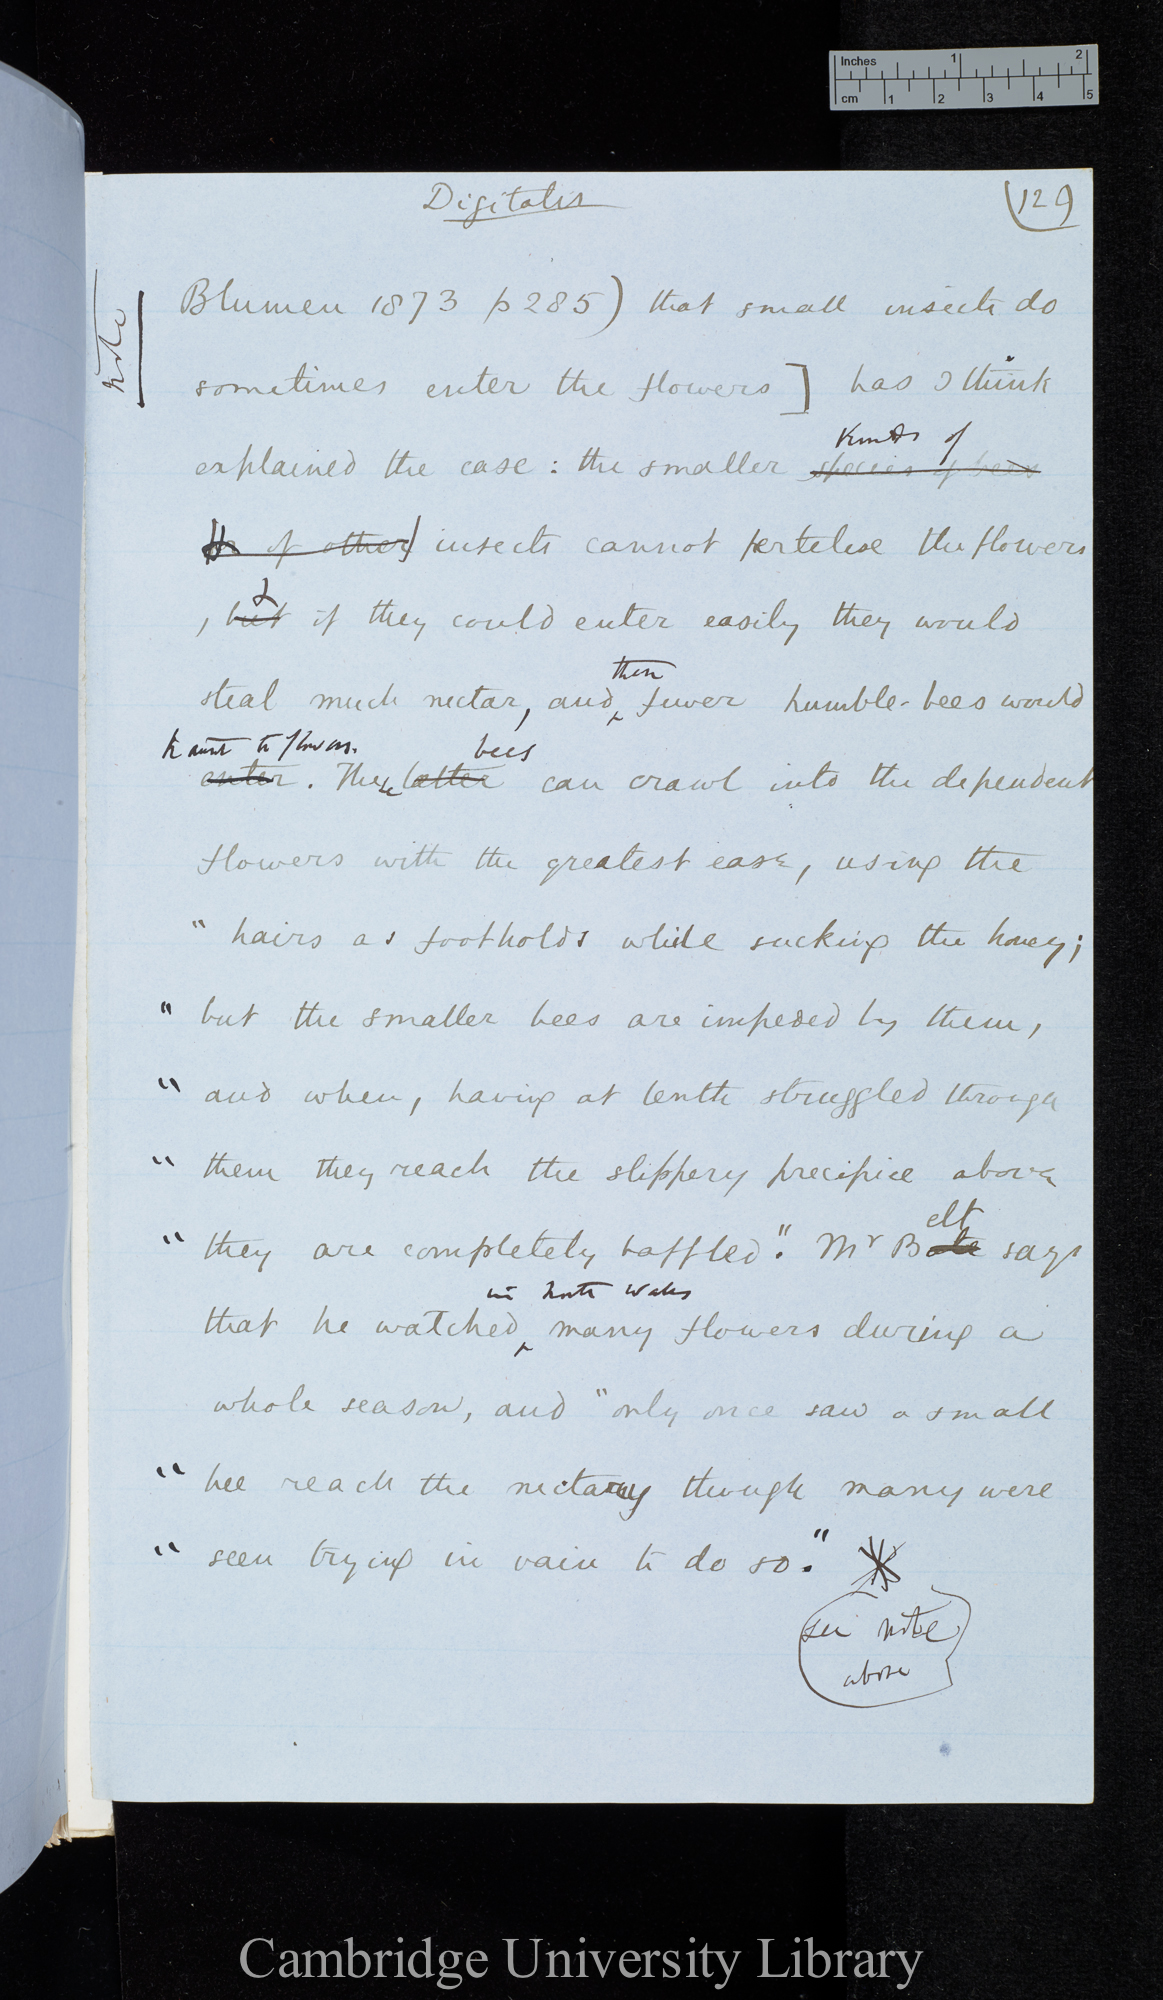 Inches 1 2
cm 1 2 3 4 5
Digitalis
(129)
note
Blumen 1873 p 285) that small insects do
sometimes enter the flowers] has I think
kinds of
explained the case: the smaller species of bees
of other] insects cannot fertelise the flowers
&
, but if they could enter easily they would
then
steal much nectar, and fewer humble-bees would
haunt the flowers. bees
enter. The latter can crawl into the dependent
flowers with the greatest ease, using the
" hairs as footholds while sucking the honey;
" but the smaller bees are impeded by them,
" and when, having at lenth struggled through
" them they reach the slippery precipice above
elt
" they are completely baffled". Mr Bate says
in North Wales
that he watched many flowers during a
whole season, and "only once saw a small
" bee reach the nectary though many were
" seen trying in vain to do so."
see note
above
Cambridge University Library